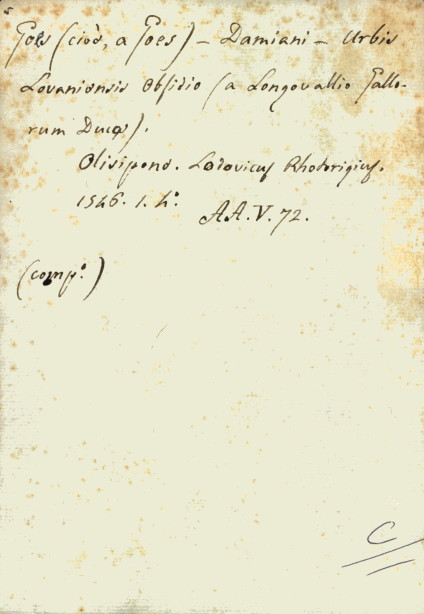 Goes (cioè, a Goes) – Damiani – Urbis
Lovaniensis Obsidio (a Longovallio Gallo-
rum Duce).
Olisipone. Lodovicus Rhotorigius.
1546. 1. 4°.
AA. V. 72.
(comp°)
C